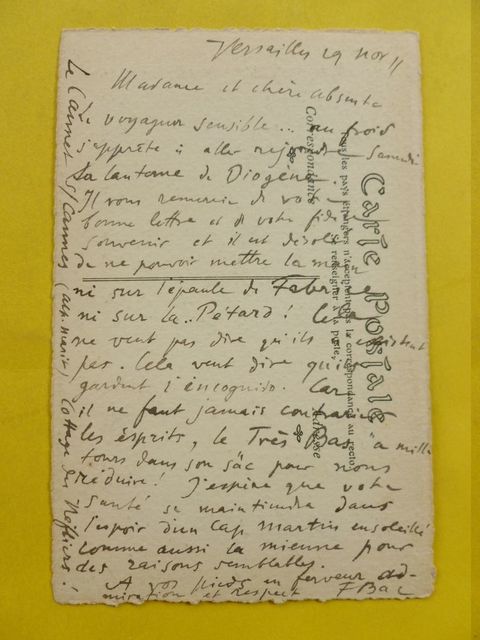 Versailles 29 nov 11
Madame et chère absente
Le voyageur sensible... au froid
s'apprête à aller rejoindre Samedi
la lanterne de Diogène.
Il vous remercie de votre
bonne lettre et de votre fidèle
souvenir et il est désolé
de ne pouvoir mettre la main
ni sur l'épaule de Fabrice
ni sur la.. Pétard! Cela
ne veut pas dire qu'ils existent
pas. Cela veut dire qu'ils
gardent l'incognito. Car
il ne faut jamais contrarier
les esprits, le Très Bas "a mille
tours dans son sac pour nous
séduire! J'espère que votre
santé se maintiendra dans
l'espoir d'un Cap Martin ensoleillé
comme aussi la mienne pour
des raisons semblables.
A vos pieds en ferveur ad-
miration et respect FBac
Le Cannet s/Cannes (Alp. Marit.) Cottage des Néfliers.
Carte Postale
Tous les pays étrangers n'acceptent pas la correspondance au recto
Se renseigner à la poste
Correspondance
Adresse